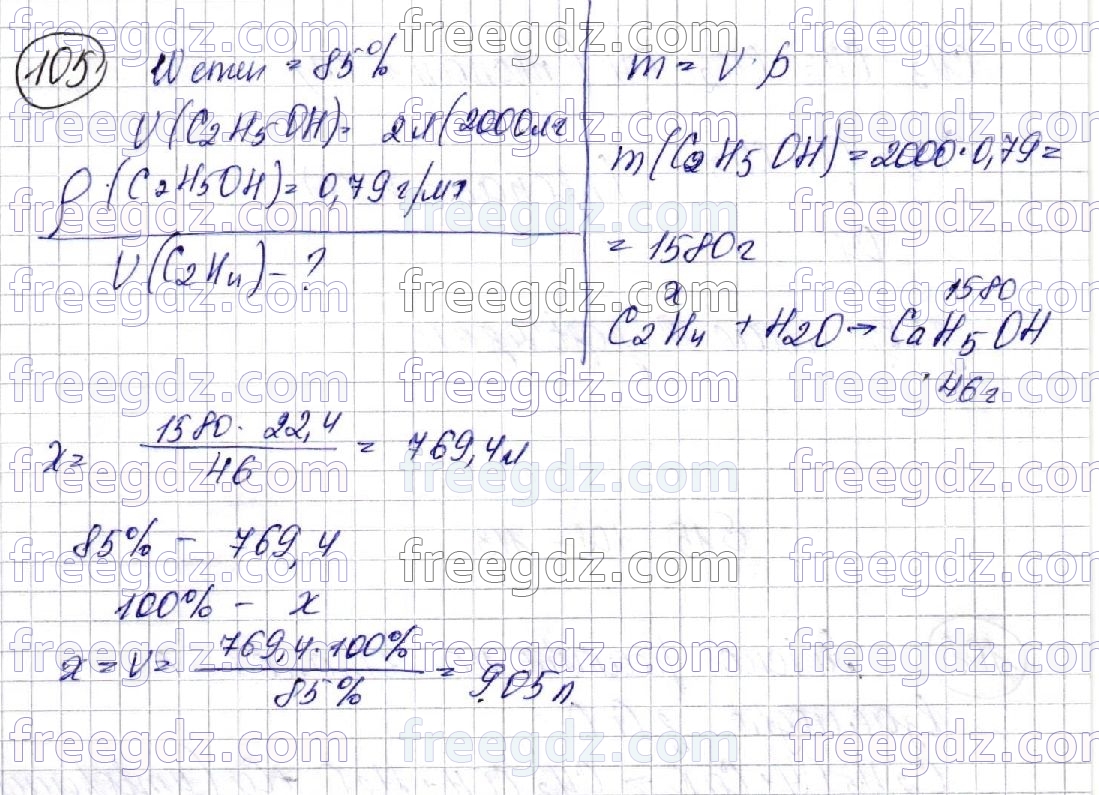 105.
Wспеп = 85%
V(C2H5OH)= 2л(2000мл
ρ·(C2H5OH)= 0,79г/мл
V(C2H4) - ?
m = V·ρ
m(C2H5OH)=2000·0,79=
= 1580г
x 1580
C2H4 + H2O → C2H5OH
46г
x= 1580· 22,4 / 46 = 769,4л
85% - 769,4
100% - x
x = V = 769,4·100% / 85% = 905л.
freegdz.com